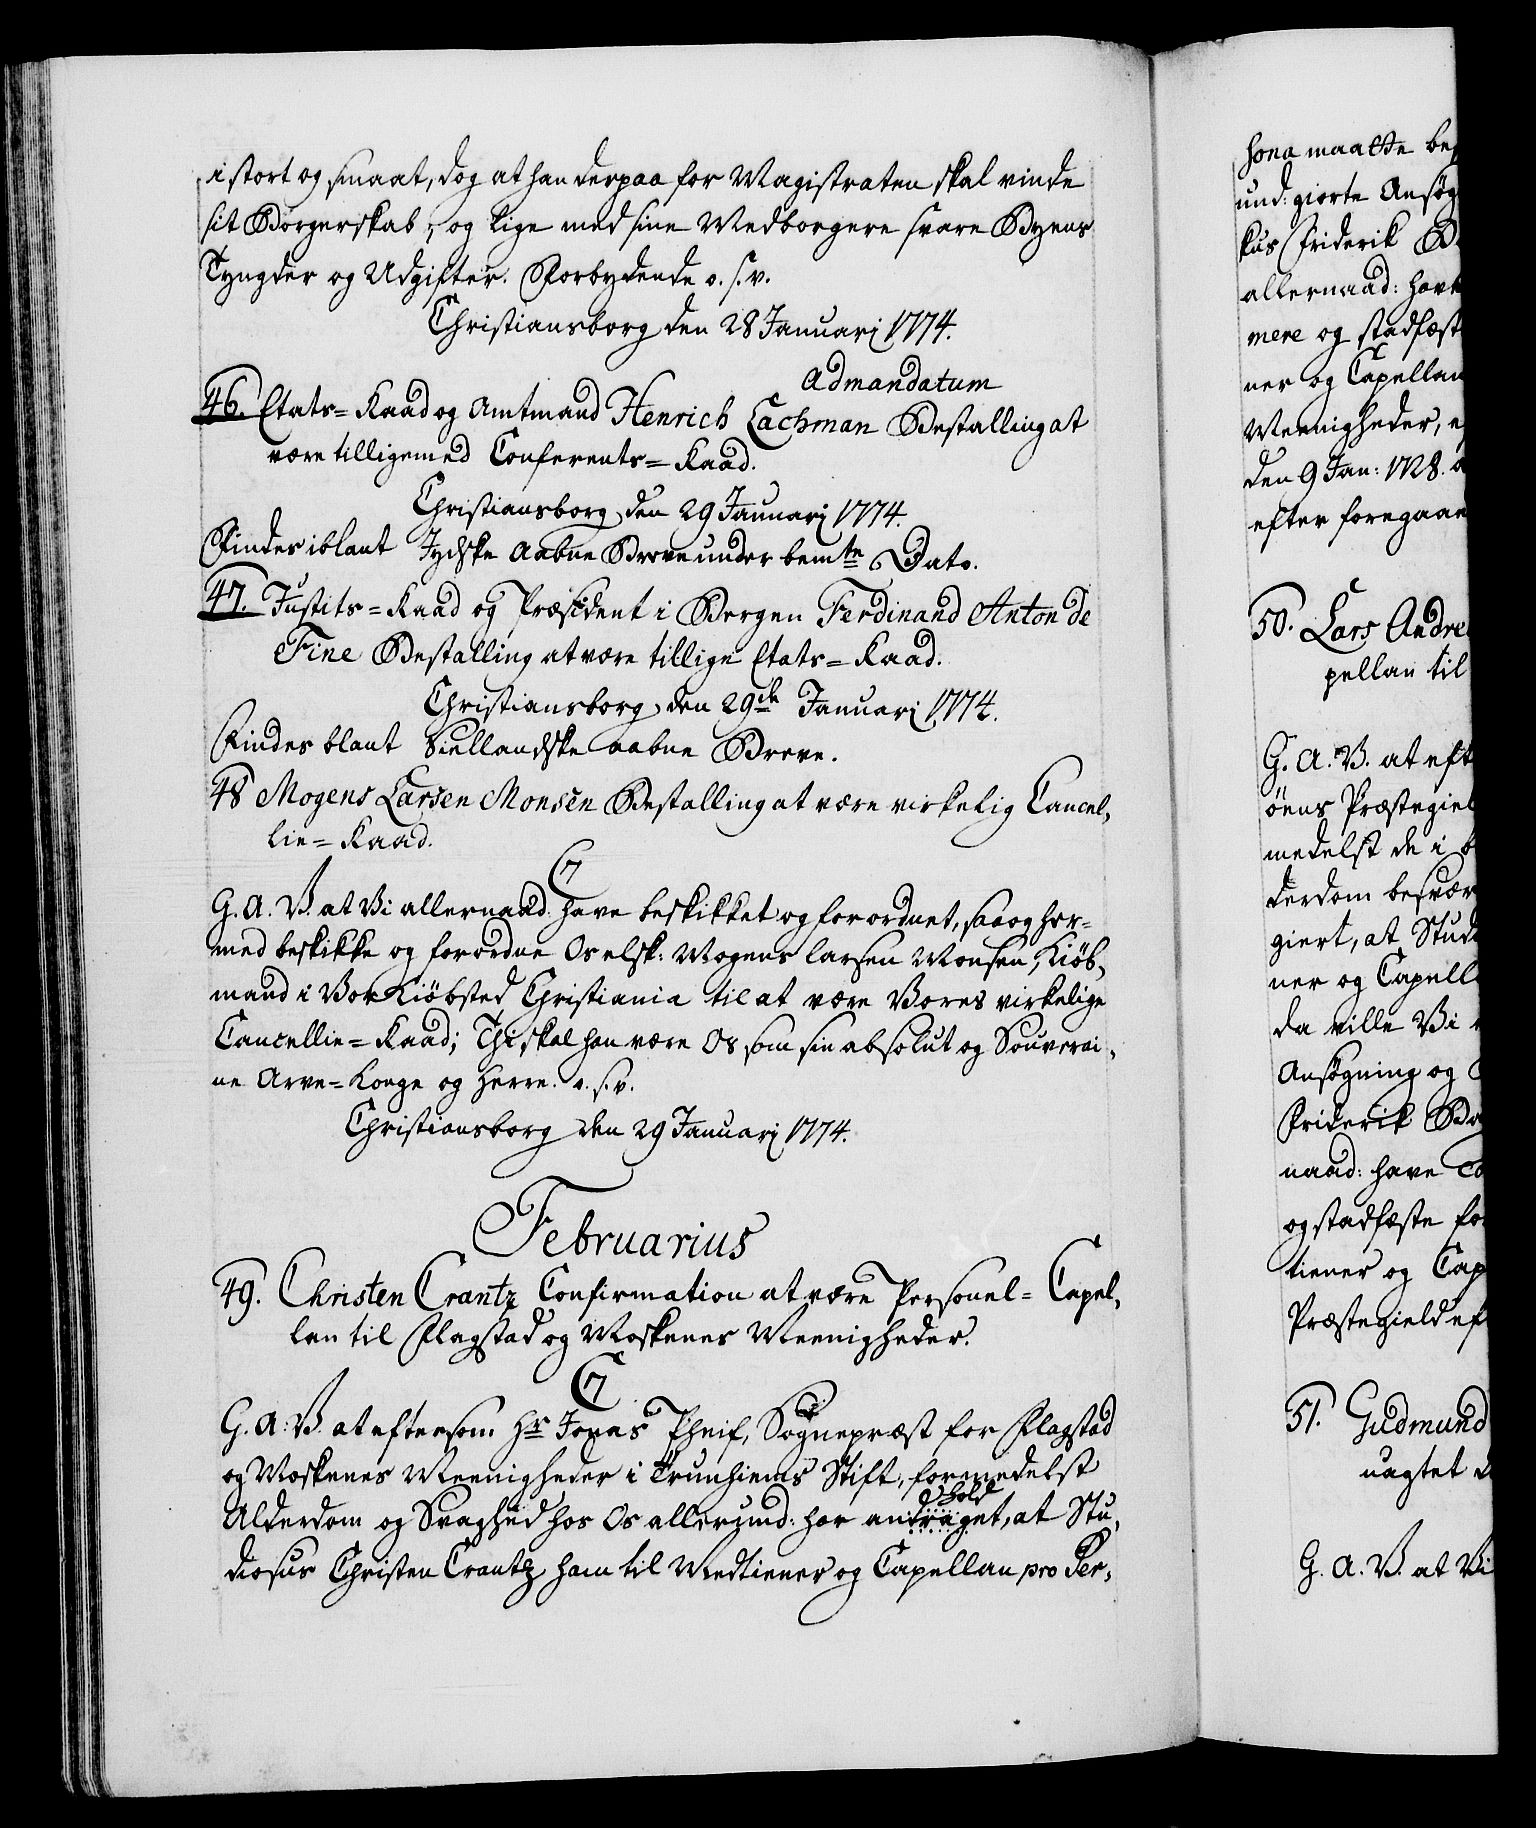 i stort og smaat, dog at han derpaa for Magistraten skal vinde
sit Borgerskab, og lige med sine Medborgere svare Byens
Tyngder og Udgifter. Forbydende o. s. v.
Christiansborg den 28 Januarj 1774.
Admandatum
46. Etats=Raad og Amtmand Henrich Lachman Bestalling at
være tilligemed Conferents=Raad.
Christiansborg den 29 Januarj 1774.
Findes iblant Jydske Aabne Breve under bemte Dato.
47. Justits=Raad og Præsident i Bergen Ferdinand Anton de
Fine Bestalling at være tillige Etats=Raad.
Christiansborg den 29de Januarj 1774.
Findes blant Siellandske aabne Breve.
48 Mogens Larsen Monsen Bestalling at være virkelig Cancel,
lie=Raad.
C7
G. A. V. at Vi allernaad: have beskikket og forordnet, saa og her=
med beskikke og forordne Os elsk: Mogens Larsen Monsen, Kiøb,
mand i Vor Kiøbsted Christiania til at være Vores virkelige
Cancellie=Raad; Thi skal han være Os som sin absolut og Souverai,
ne Arve=Konge og Herre. o. s. v.
Christiansborg den 29 Januarj 1774.
Februarius
49. Christen Crantz Confirmation at være Personel=Capel,
lan til Flagstad og Moskenes Meenigheder.
C7
G. A. V. at eftersom Hr Jonas Pheif, Sognepræst for Flagstad
og Moskenes Meenigheder i Trunhiems Stift, formedelst
Alderdom og Svaghed hos Os allerund: har andraget, at Stu,
hold
diosus Christen Crantz ham til Medtiener og Capellan pro Per,
sona maatte be
und: giorte Ansøg
kus Friderik
allernaad: have
mere og stadfæst
ner og Capellan
Meenigheder, e
den 9 Jan: 1728.
efter foregaae
50. Lars Andre
pellan til
G. A. V. at eft
öens Præstegiel
medelst de i
derdom besvær
giert, at Stud
ner og Capell
da ville Vi
Ansøgning og
Friderik
naad: have
og stadfæste for
tiener og Cap
Præstegield ef
51. Gudmund
uagtet
G. A. V. at Vi